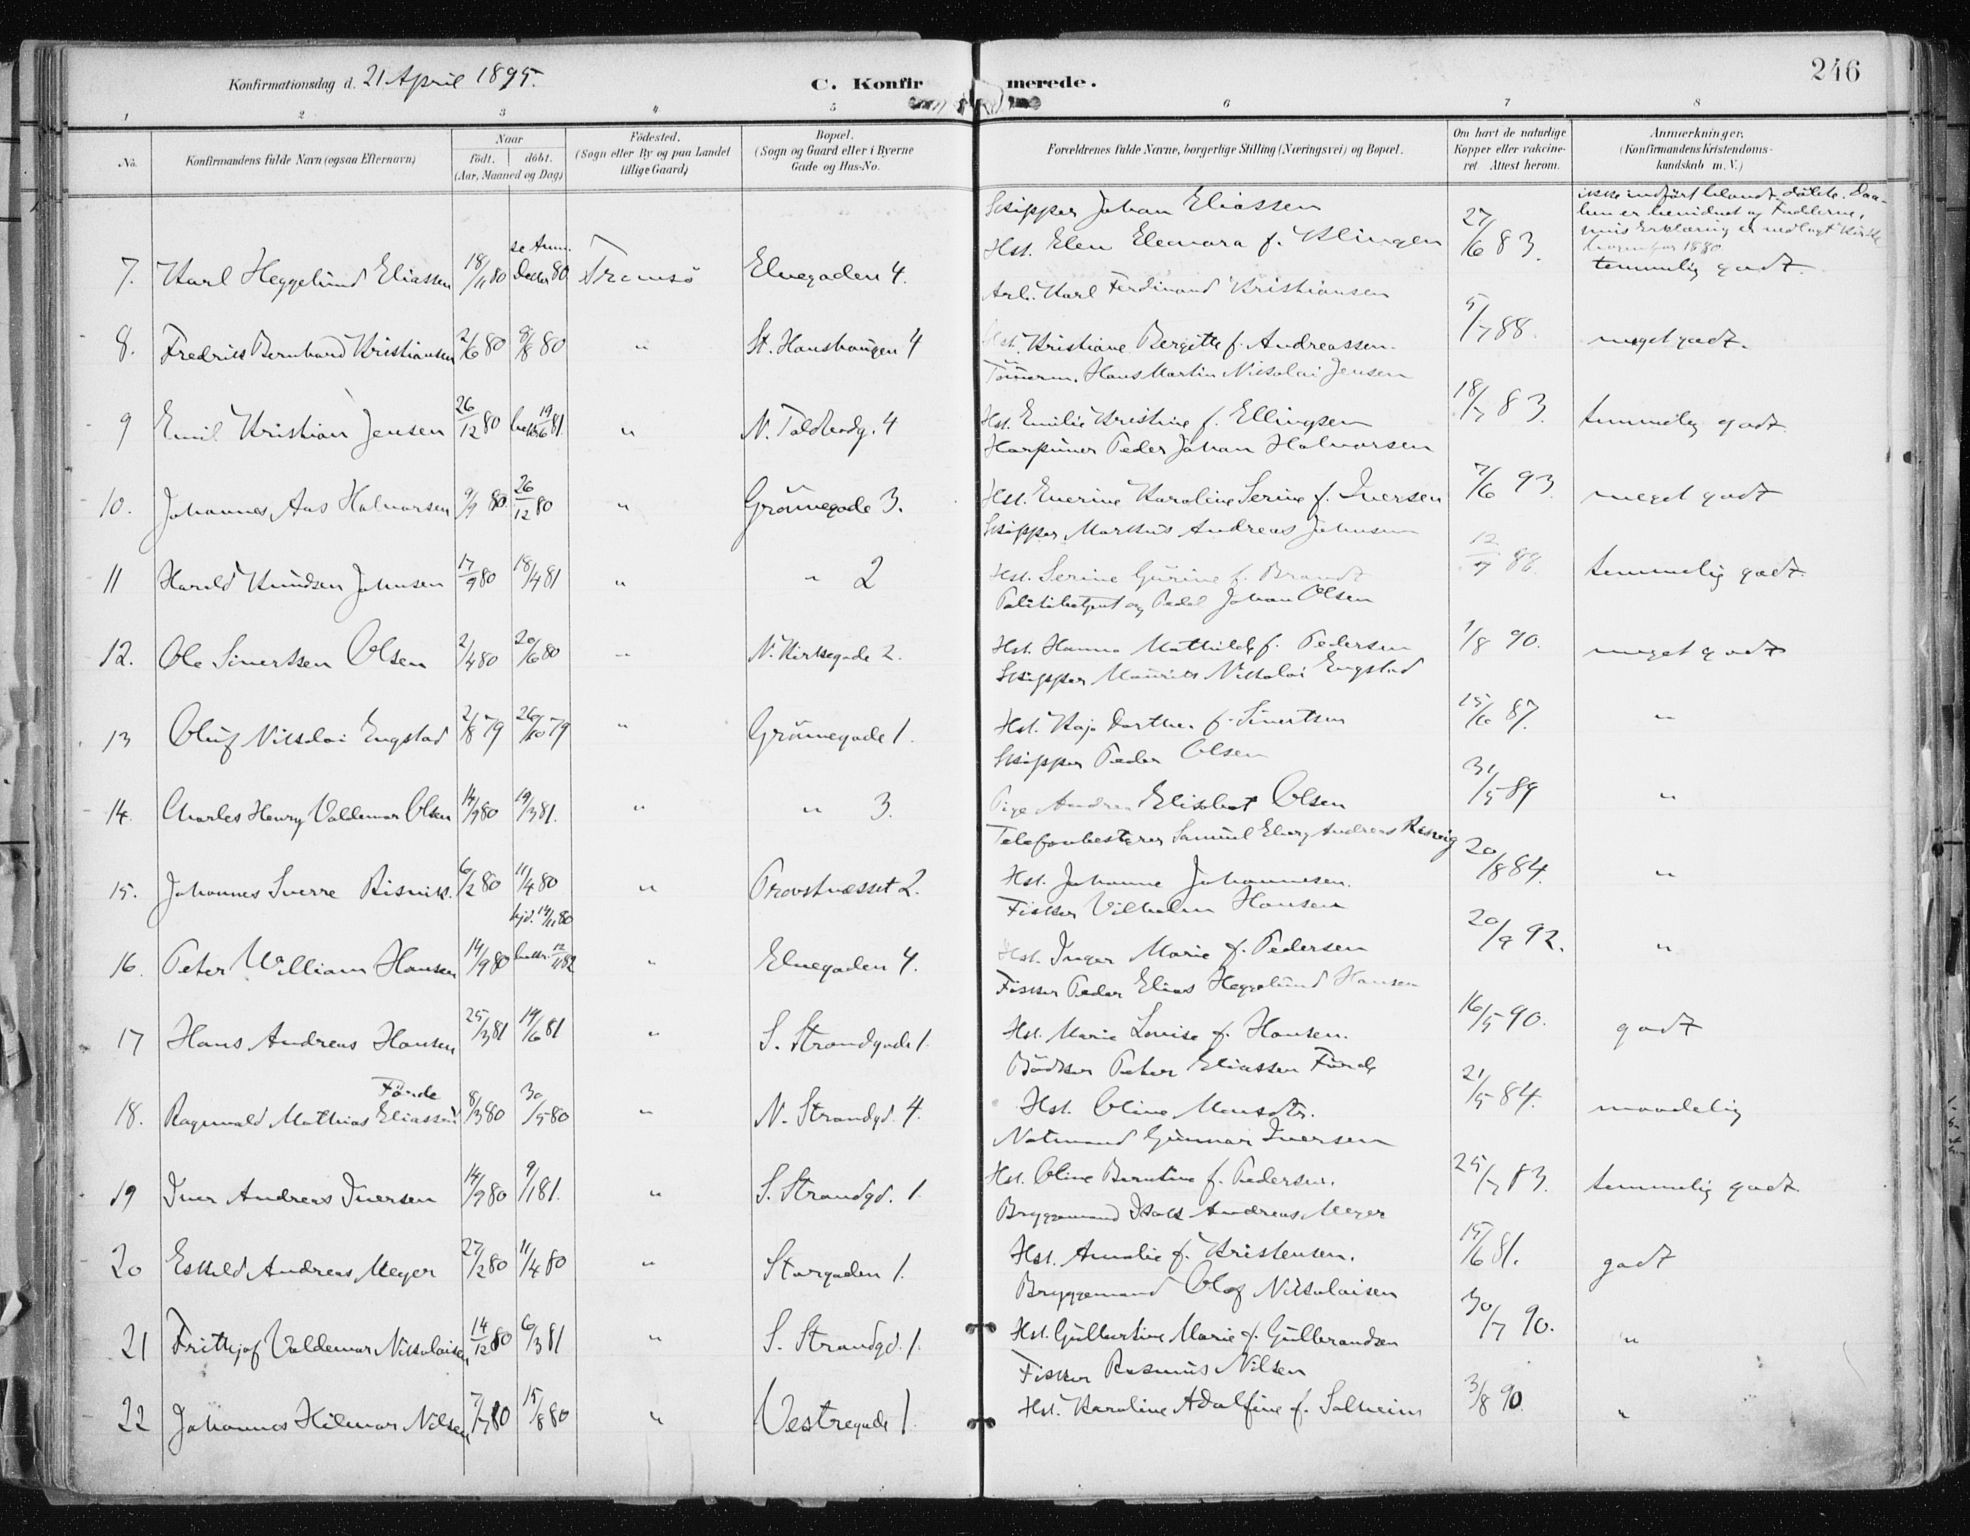 Konfirmationsdag d. 21 April 1895.
C. Konfirmerede.
246
1 2 3 4 5 6 7 8
No.
Konfirmandens fulde Navn (ogsaa Efternavn)
Naar
födt. döbt.
(Aar, Maaned og Dag)
Födested.
(Sogn eller By og paa Landet
tillige Gaard)
Bopæl.
(Sogn og Gaard eller i Byerne
Gade og Hus-No.
Forældrenes fulde Navne, borgerlige Stilling (Næringsvei) og Bopæl.
Om havt de naturlige
Kopper eller vakcine-
ret. Attest herom.
Anmærkninger.
(Konfirmandens Kristendoms-
kundskab m. V.)
Skipper Johan Eliassen
ikke indført blandt døbte. Daa-
ben er bevidnet af Fadderne,
7. Karl Heggelund Eliassen 18/11 80 se Anm. Tromsö Elvegaden 4. Hst. Elen Eleonora f. Klingen 27/6 83. temmelig godt.
Arb. Karl Ferdinand Kristiansen
8. Fredrik Bernhard Kristiansen 2/6 80 8/8 80 " St. Hanshaugen 4 Hst. Kristiane Bergitte f. Andreassen. 5/7 88. meget godt.
Tömerm. Hans Martin Nikolai Jensen
9 Emil Kristian Jensen 26/12 80 19/6 81. " N. Toldbodg. 4 Hst. Emilie Kristine f. Ellingsen 18/7 83. temmelig godt.
Harpuner Peder Johan Halvorsen
10. Johannes Aas Halvorsen 9/9 80. 26/12 80 " Grönnegade 3. Hst. Everine Karoline Serine f. Iversen 7/6 93. meget godt
Skipper Markus Andreas Johnsen
11 Harald Knudsen Johnsen 17/9 80 18/4 81 " " 2 Hst. Serine Gurine f. Brandt 12/7 88. temmelig godt.
Politibetjent og Pedel Johan Olsen
12. Ole Sivertsen Olsen 2/4 80 20/6 80 " N. Kirkegade 2. Hst. Hanna Mathilde f. Pedersen 1/8 90. meget godt
Skipper Mauritz Nikolai Engstad
13 Oluf Nikolai Engstad 2/8 79 26/10 79 " Grönnegade 1. Hst. Kaja Dorthea f. Sivertsen 15/6 87. "
Skipper Peder Olsen
14. Charles Henry Valdemar Olsen 14/9 80 19/3 81. " " 3. Pige Andrea Elisabet Olsen 31/5 89 "
Telefonbestyrer Samuel Eberg Andreas Resvig
15. Johannes Sverre Risvik. 6/2 80 11/4 80 " Provstnæsset 2. Hst. Johanne Johannesen. 20/8 84. "
hjd. 14/11 80 Fisker Vilhelm Hansen
16. Peter William Hansen 14/9 80 12/11 82 " Elvegaden 4. Hst. Inger Marie f. Pedersen 20/9 92. "
Fisker Peder Elias Heggelund Hansen
17 Hans Andreas Hansen 25/3 81 14/6 81 " S. Strandgade 1. Hst. Marie Lovise f. Hansen. 16/5 90. godt
Förde Bödker Peter Eliassen Förde
18. Ragnvald Mathias Eliassen 8/3 80 30/5 80 " N. Strandgd. 4. Hst. Oline Monsdtr. 21/5 84. maadelig
Natmand Gunnar Iversen
19 Iver Andreas Iversen 14/9 80 9/1 81. " S. Strandgd. 1. Hst. Oline Berntine f. Pedersen. 25/7 83. temmelig godt
Bryggemand Isak Andreas Meyer
20 Eskild Andreas Meyer 27/2 80 11/4 80 " Storgaden 1. Hst. Amalie f. Kristensen. 15/6 81. godt
Bryggemand Olaf Nikolaisen
21 Frithjof Valdemar Nikolaisen 14/12 80 6/3 81 " S. Strandgd. 1. Hst. Gulbertine Marie f. Gulbrandsen 30/7 90. "
Fisker Rasmus Nilsen
22 Johannes Hilmar Nilsen 7/7 80 15/8 80 " Vestregade 1. Hst. Karoline Adolfine f. Solheim 3/8 90. "